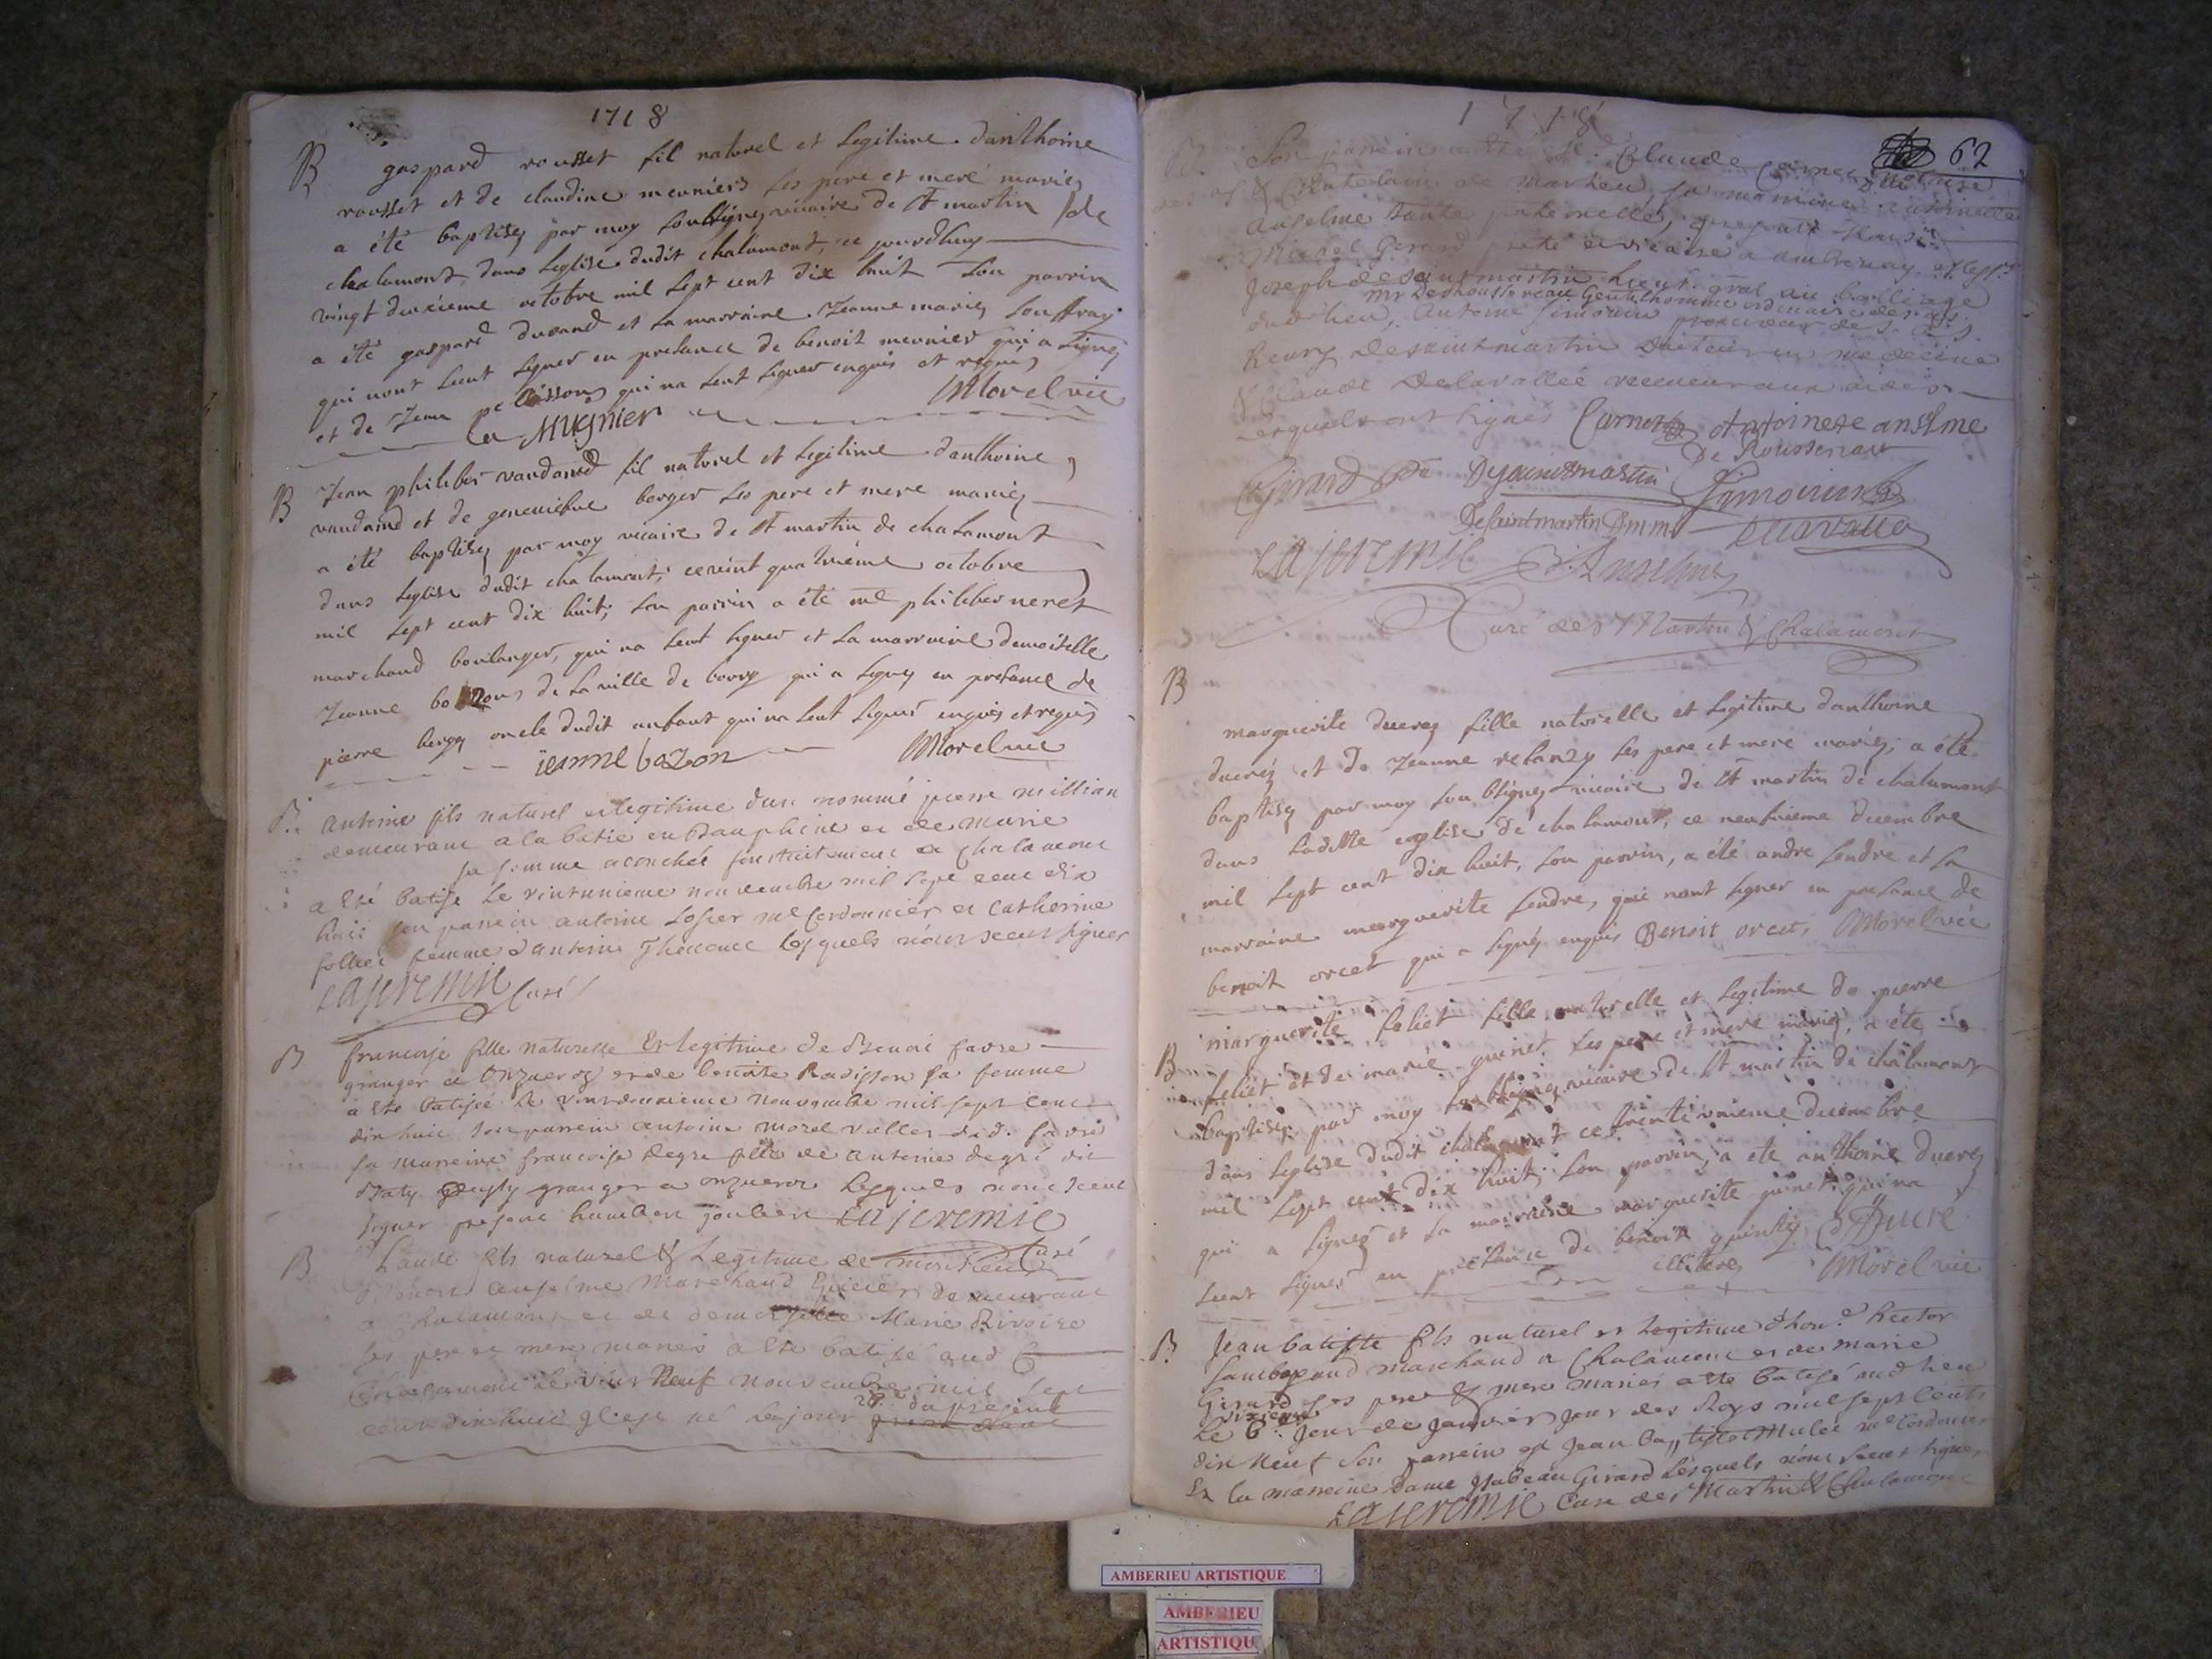 1718
B gaspard rousset fil naturel et legitime danthoine
rousset et de claudine meuniers ses pere et mere mariez
a été baptisez par moy soubsigne vicaire de st martin de
chalamont, dans leglise dudit chalamont, ce jourdhuy
vingt deuxieme octobre mil sept cent dix huit son parrin
a été gaspard durand et sa marraine Jeanne marie souffray
qui nont sceut signer en presance de benoit meunier qui a signez
et de Jean pelisson qui na sceut signer enquis et requis
Mugnier Morel vic
B Jean philiber vandamd fil naturel et legitime danthoine
vandamd et de genevieve berger ses pere et mere mariez
a été baptisez par moy vicaire de st martin de chalamont
dans leglise dudit chalamont, ce vint quatrieme octobre
mil sept cent dix huit, son parrin a été me philiber neret
marchand boulanger, qui na sceut signer et sa marraine demoiselle
Jeanne bozons de la ville de bourg qui a signez en presance de
pierre berger oncle dudit anfant qui na sceut signer enquis et requis
ieanne bozon Morel vic
B. antoine fils naturel et legitime dun nommé pierre millian
demeurant a la batie en dauphine et de marie
sa femme acouchée a Chalamont
a esté batisé le vintunieme novembre mil sept cent dix
huit son parrein antoine me Cordonnier et Catherine
folliet femme dantoine lesquels n'ont sceut signer
Lajeremie Curé
B francoise fille naturelle Et legitime de Benoit favre
granger a et de benoite Radisson sa femme
a esté batisée le vintdeuxieme novembre mil sept cent
dix huit son parrein antoine morel vallet dud. favre
sa marreine francoise degre fille de antoine degré dit
granger a lesquels nont sceut
signer present Lajeremie
Curé
B Claude fils naturel & Legitime de monsieur
Benoit anselme Marchand Epicier demeurant
a Chalamont et de demoiselle Marie Rivoire
ses pere et mere mariés a esté batisé aud
Chalamont le vint Neuf novembre mil sept
cent dix huit il est né le jour 28e du present
1718
62
Son parrein a esté Sr. Claude Carnet
& Chatelain de Marlieu, sa marreine antoinette
anselme tante paternelle,
Michel Gerard prêtre et vicaire a ambronay
Joseph de saint martin Lieut. gnal au balliage
Mr Derhousseveau Gentilhomme ordinaire
dud lieu, Antoine Simonin procureur
henry de saint martin Docteur en medecine
& Claude Delavallée receveur aux aides
lesquels ont signés Carnet Antoinete anselme
De Rousseveau
Girard Desainctmartin Simonin
Desaintmartin Dmm Delavalla
Lajeremie B. Anselme
Curé de st Martin & Chalamont
B
marguerite ducrez fille naturelle et legitime danthoine
ducrez et de Jeanne relanzy ses pere et mere mariez, a été
baptisez par moy soubsigne vicaire de st martin de chalamont
dans laditte eglise de chalamont, ce neufvieme decembre
mil sept cent dix huit, son parrin, a été andre sendre et sa
marraine marguerite sendre, qui nont signer en presance de
benoit orcet qui a signez enquis Benoit orcet Morel vic
B marguerite feliet fille naturelle et legitime de pierre
feliet et de marie guinet ses pere et mere mariez, a été
baptisez par moy soubsigne vicaire de st martin de chalamont
dans leglise dudit chalamont ce trentivnieme decembre
mil sept cent dix huit, son parrin, a été anthoine ducrez
qui a signez et sa marraine marguerite guinet qui na
sceut signer en presance de benoit Ducre
illiteres Morel vic
B Jean batiste fils naturel et legitime d'hon.e hector
marchand a Chalamont et de marie
Girard ses pere & mere mariés a esté batisé aud lieu
Le 6e sixieme jour de janvier jour des Roys mil sept cents
dix Neuf Son parrein est Jean baptiste Mulet me Cordonnier
Et la marreine Dame ysabeau Girard Lesquels n'ont sceut signer
Lajeremie Curé de st Martin & Chalamont
AMBERIEU ARTISTIQUE
AMBERIEU
ARTISTIQU